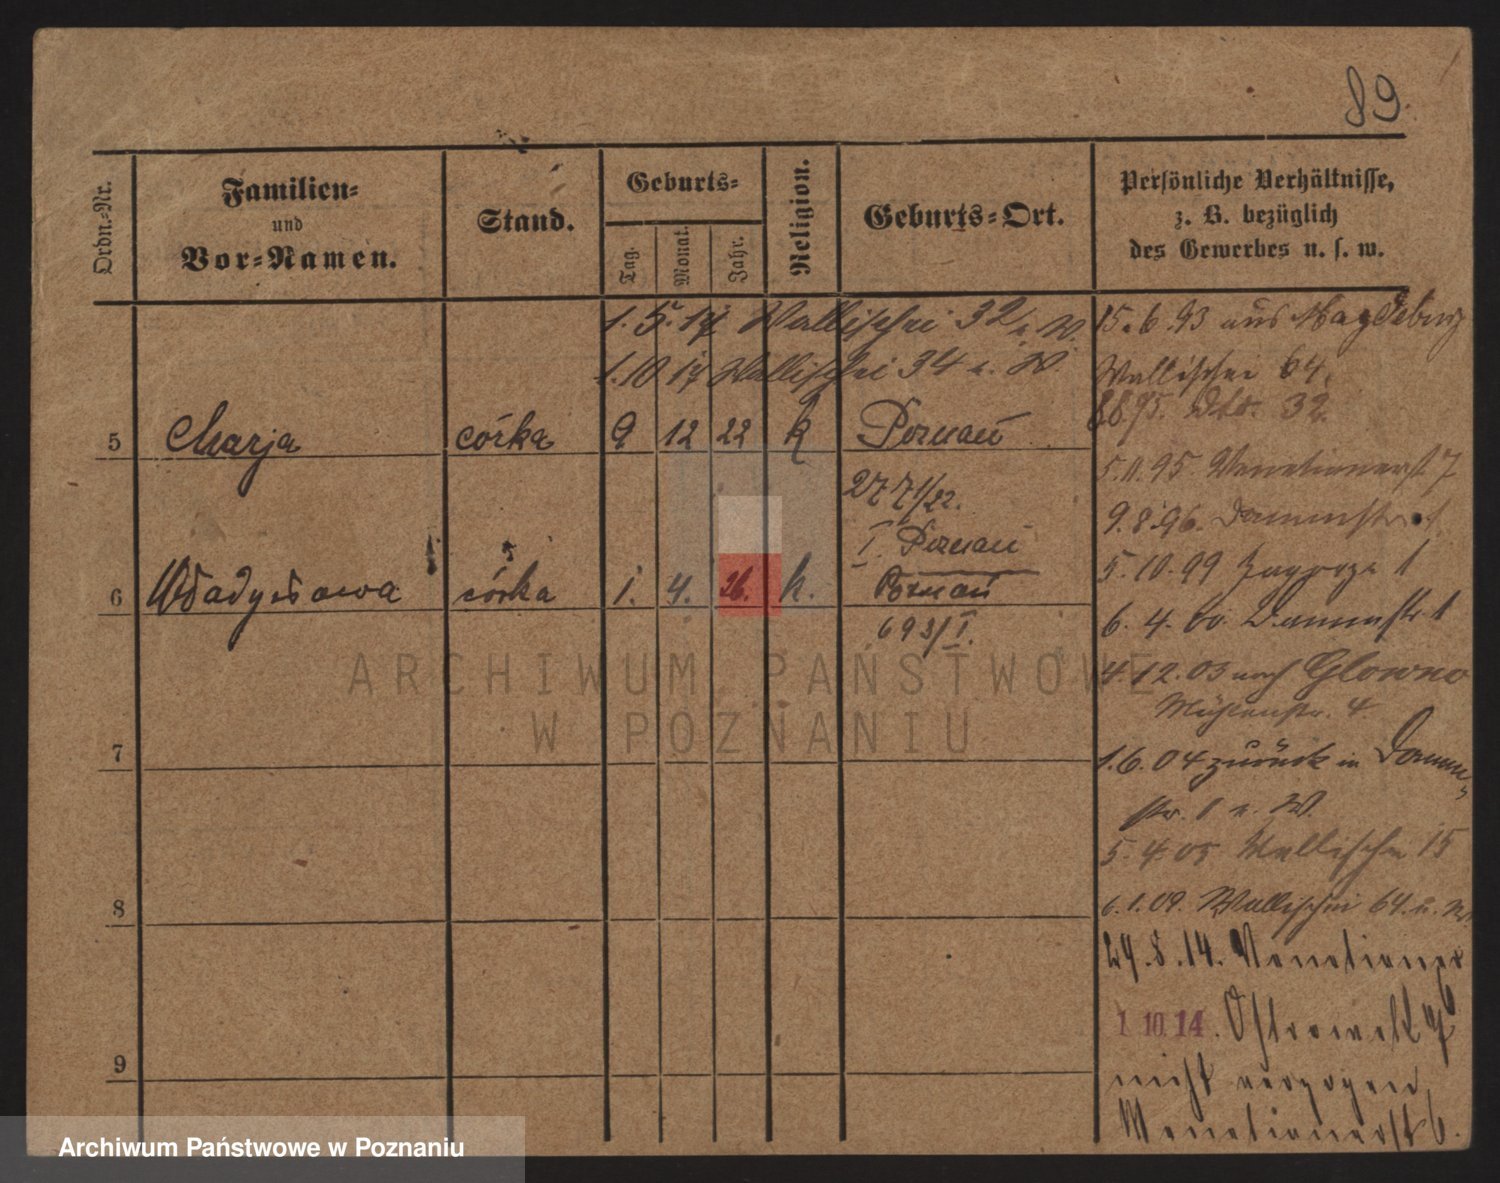 89.
Ordn.-Nr.
Familien-
und
Vor-Namen.
Stand.
Geburts-
Tag.
Monat.
Jahr.
Religion.
Geburts-Ort.
Persönliche Verhältnisse,
z. B. bezüglich
des Gewerbes u. s. w.
1.5.17 Wallischei 32 u. W.
1.10 17 Wallischei 34 u. W.
15.6.93 aus Magdeburg
Wallischei 64,
8.8.95. dto. 32.
5 Marja córka 9 12 22 k Poznań
5.11.95. Venetianerst 7
2771/22.
9.8.96. Dammstr. 1
I. Poznań
5.10.99 Zagorze 1
6 Władysława córka 1. 4. 26. k. Poznań
693/I.
6.4.00 Dammstr. 1
4.12.03 nach Glowno
Mühlenstr. 4
7
1.6.04 zurück in Damm-
str. 1 u. W.
5.4.05 Wallischei 15
8
6.1.09. Wallischei 64 u. W.
29.8.14. Venetianer
1.10.14. Ostrowek 6
9
nicht verzogen
Venetianerst 6.
ARCHIWUM PAŃSTWOWE
W POZNANIU
Archiwum Państwowe w Poznaniu